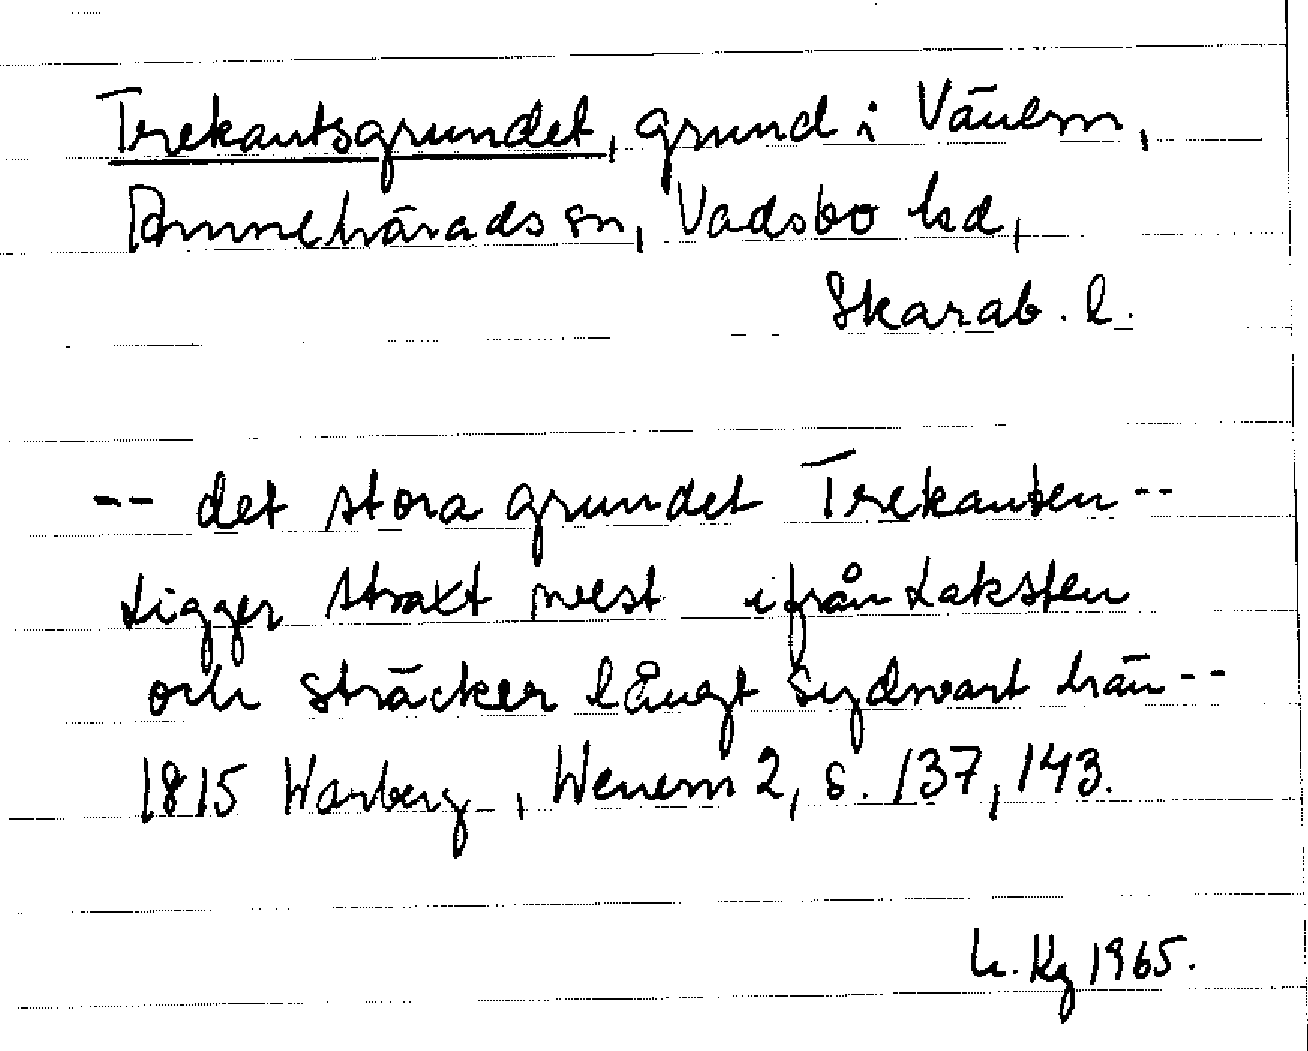 Trekantsgrundet, grund i Vänern,
Amnehärads sn, Vadsbo hd,
Skarab. l.
-- det stora grundet Trekanten --
Ligger straxt west ifrån Laksten
och sträcker långt sydwart hän --
1815 Warberg, Wenern 2, s. 137, 143.
L. Kg 1965.